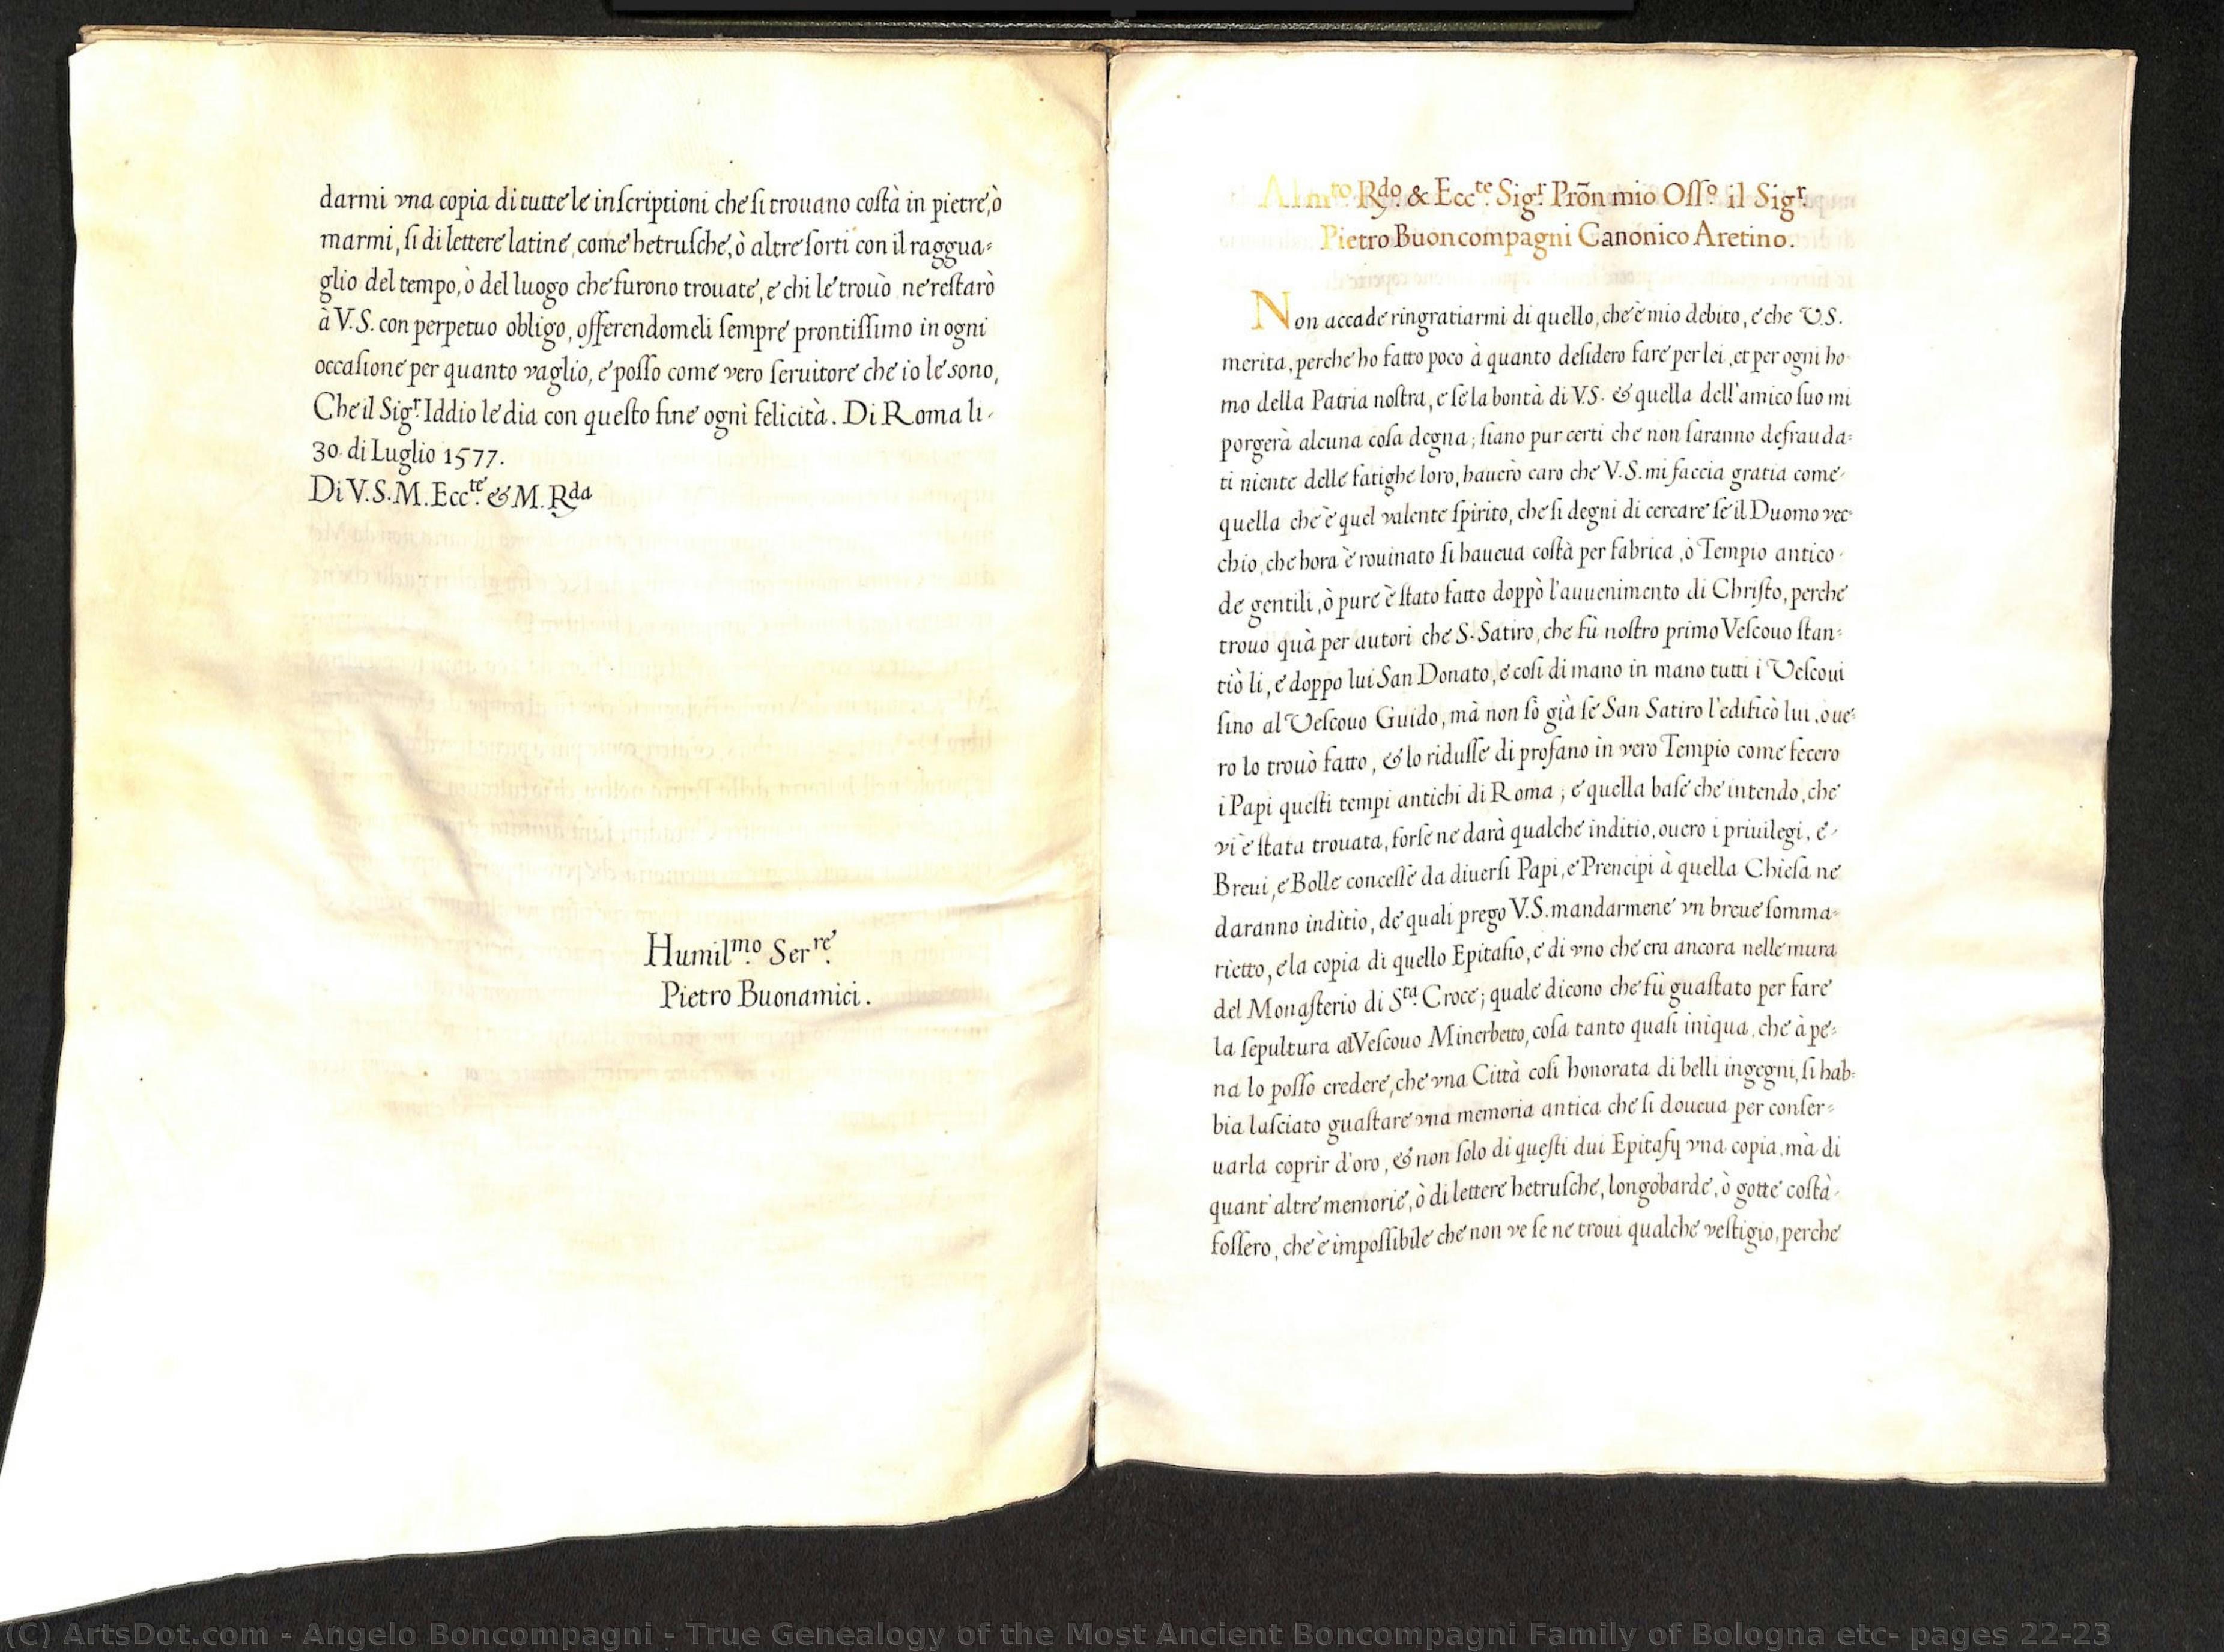 darmi vna copia di tutte le inſcriptioni che ſi trouano coſtà in pietre, ò
marmi, ſi di lettere latine, come hetruſche, ò altre ſorti con il raggua-
glio del tempo, ò del luogo che furono trouate, e chi le trouò ne reſtarò
à V.S. con perpetuo obligo, offerendomeli ſempre prontiſſimo in ogni
occaſione per quanto vaglio, e poſſo come vero ſeruitore che io le sono,
Che il Sig.r Iddio le dia con queſto fine ogni felicità. Di Roma li
30. di Luglio 1577.
Di V.S.M. Ecc.te & M. Rda
Humil.mo Ser.re
Pietro Buonamici.
Al m.to R.do & Ecc.te Sig.r Prõn mio Oſſ.o il Sig.r
Pietro Buoncompagni Canonico Aretino.
Non accade ringratiarmi di quello, che è mio debito, e che V.S.
merita, perche ho fatto poco à quanto deſidero fare per lei, et per ogni ho-
mo della Patria noſtra, e ſe la bontà di V.S. & quella dell'amico ſuo mi
porgerà alcuna coſa degna; ſiano pur certi che non ſaranno defrauda-
ti niente delle fatighe loro, hauerò caro che V.S. mi faccia gratia come
quella che è quel valente ſpirito, che ſi degni di cercare ſe il Duomo vec-
chio, che hora è rouinato ſi haueua coſtà per fabrica, ò Tempio antico
de gentili, ò pure è ſtato fatto doppò l'auuenimento di Chriſto, perche
trouo quà per autori che S. Satiro, che fù noſtro primo Veſcouo ſtan-
tiò li, e doppo lui San Donato, e coſi di mano in mano tutti i Veſcoui
ſino al Veſcouo Guido, mà non ſò già ſe San Satiro l'edificò lui, oue-
ro lo trouò fatto, & lo riduſſe di profano in vero Tempio come fecero
i Papi queſti tempi antichi di Roma; e quella baſe che intendo, che
vi è ſtata trouata, forſe ne darà qualche inditio, ouero i priuilegi, e
Breui, e Bolle conceſſe da diuerſi Papi, e Prencipi à quella Chieſa ne
daranno inditio, de quali prego V.S. mandarmene vn breue ſomma-
rietto, e la copia di quello Epitafio, e di vno che era ancora nelle mura
del Monaſterio di S.ta Croce; quale dicono che fù guaſtato per fare
la ſepultura al Veſcouo Minerbetto, coſa tanto quaſi iniqua, che à pe-
na lo poſſo credere, che vna Città coſi honorata di belli ingegni, ſi hab-
bia laſciato guaſtare vna memoria antica che ſi doueua per conſer-
uarla coprir d'oro, & non ſolo di queſti dui Epitafij vna copia, mà di
quant'altre memorie, ò di lettere hetruſche, longobarde, ò gotte coſtà
foſſero, che è impoſſibile che non ve ſe ne troui qualche veſtigio, perche
(C) ArtsDot.com - Angelo Boncompagni - True Genealogy of the Most Ancient Boncompagni Family of Bologna etc- pages 22-23